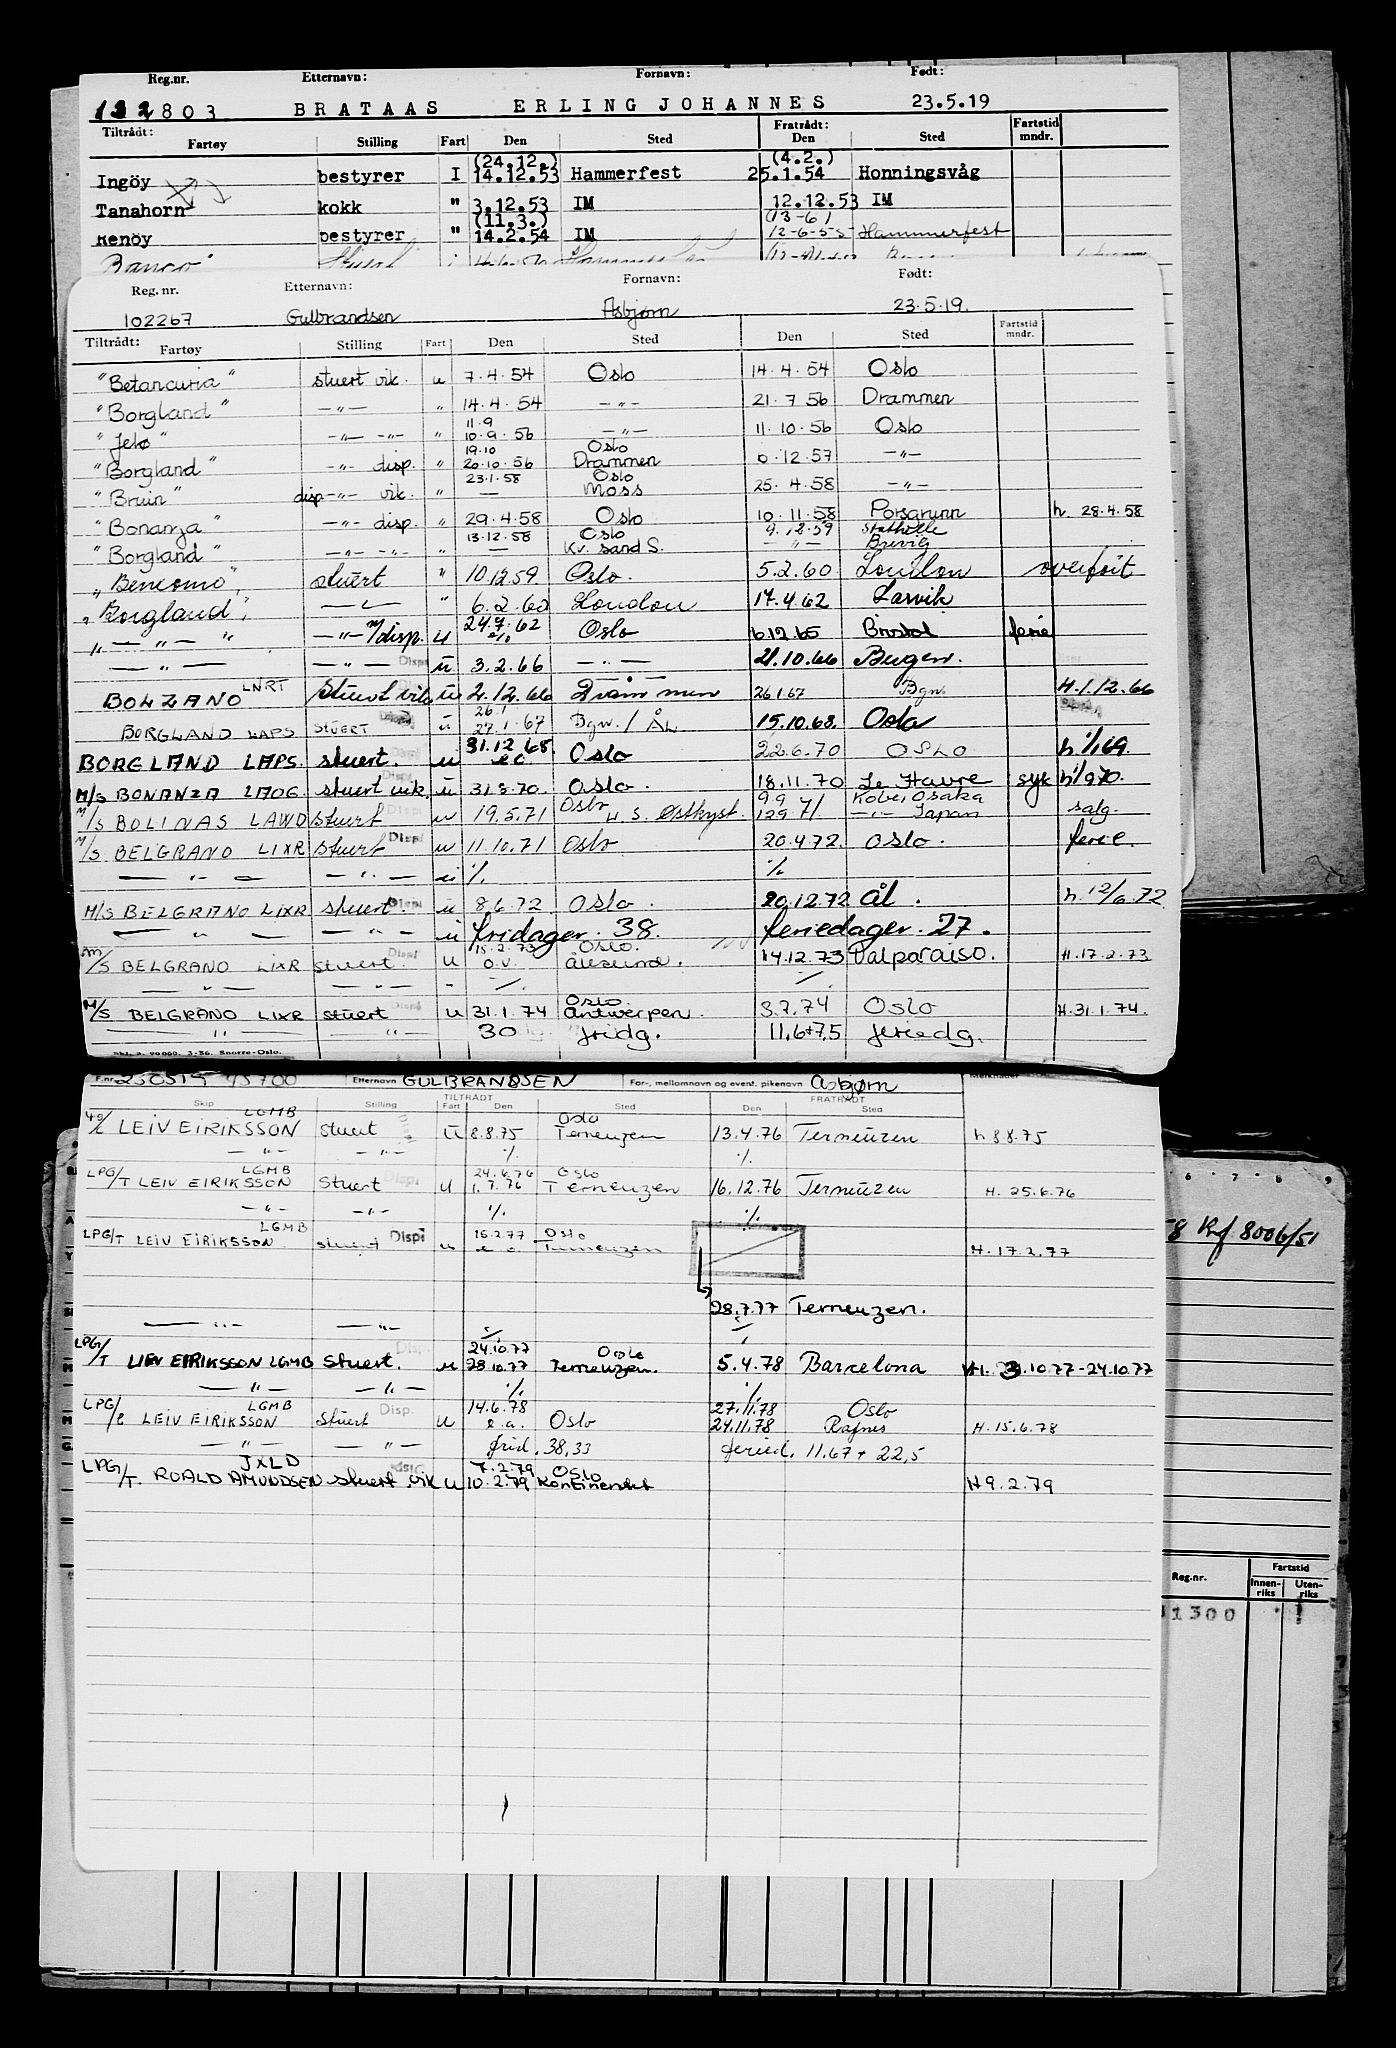 Reg.nr. Etternavn: Fornavn: Født:
132803 BRATAAS ERLING JOHANNES 23.5.19
Tiltrådt: Fratrådt: Fartstid
Fartøy Stilling Fart Den Sted Den Sted mndr.
(24.12.) (4.2.)
Ingöy bestyrer I 14.12.53 Hammerfest 25.1.54 Honningsvåg
Tanahorn kokk " 3.12.53 IM 12.12.53 IM
(11.3.) (13-6)
Renöy bestyrer " 14.2.54 IM 12-6-55 Hammerfest
Banco
Reg. nr. Etternavn: Fornavn: Født:
102267 Gulbrandsen Asbjørn 23.5.19.
Tiltrådt: Fartstid
Fartøy Stilling Fart Den Sted Den Sted mndr.
"Betancuria" stuert vik. u 7.4.54 Oslo 14.4.54 Oslo
"Borgland" -"- " 14.4.54 -"- 21.7 56 Drammen
11.9
"Jelø" -"- -"- " 10.9.56 -"- 11.10.56 Oslo
19.10 Oslo
"Borgland" -"- disp. " 20.10.56 Drammen 6.12.57 -"-
23.1.58 Oslo
"Bruin" disp -"- vik. " — Moss 25.4.58 -"-
"Bonanza" -"- disp. " 29.4.58 Oslo 10.11.58 Porsgrunn h. 28.4.58
13.12.58 Oslo 9.12.59 Stathelle
"Borgland" -"- -"- " — Kr. sand S. -"- Brevig
"Bencomo" stuert " 10.12.59 Oslo. 5.2.60 London overført
"Borgland" -"- " 6.2.60 London 17.4.62 Larvik
-"- -"- m/disp. u 24.7.62 Oslo 6.12.65 Bristol ferie
-"- -"- Dispi u 3.2.66 -"- 21.10.66 Bergen.
BOLZANO LNRT Stuert vik u 2.12.66 Drammen 26.1.67 Bgn. H.1.12.66
26.1
BORGLAND LAPS STUERT u 27.1.67 Bgn. / ÅL 15.10.68. Oslo
31.12 68.
BORGLAND LAPS. stuert. u Oslo 22.6.70 OSLO h 1/1 69.
M/S BONANZA LAOG. stuert vik. u 31.8.70. Oslo. 18.11.70 Le Havre syk h 1/9 70.
M/S BOLINAS LAWD stuert u 19.5.71 Oslo U S. Østkyst. 9.9 12.9 71 Kobe, Osaka -"- Japan salg.
M/S BELGRANO LIXR stuert Dispi u 11.10.71 Oslo 20.4.72. OSLO. ferie.
-"- -"- u % %
M/S BELGRANO LIXR stuert. Dispi u 8.6.72. Oslo. 20.12.72 ål. h. 12/6.72
-"- -"- u fridager. 38. feriedager. 27.
15.2.73 Oslo.
M/S BELGRANO LIXR stuert. Dispi u o.v. Ålesund. 14.12.73 Valparaiso. H.17.2.73
-"- -"- - % %
Oslo.
M/S BELGRANO LIXR stuert Dispi u 31.1.74 Antwerpen. 3.7.74 Oslo H.31.1.74.
-"- -"- 30 fridg. 11.6+7.5 feriedg.
Skj. 2. 90 000. 3-56. Snorre-Oslo.
F.nr. 230519 45700 Etternavn GULBRANDSEN For-, mellomnavn og event. pikenavn Asbjørn Merknader
TILTRÅDT FRATRÅDT
Skip Stilling Fart Den Sted Den Sted
LGMB Oslo
LEIV EIRIKSSON stuert u 8.8.75 Terneuzen 13.4.76 Terneuzen h 8 8.75
-"- -"- % %
LGMB 24.6.76 Oslo
LPG/T LEIV EIRIKSSON Stuert Dispi u 1.7.76 Terneuzen 16.12.76 Terneuzen H. 25.6.76
-"- -"- % %
LGMB 15.2.77 Oslo
LPG/T LEIV EIRIKSSON stuert Dispi u e.a. Terneuzen H. 17.2.77
28.7.77 Terneuzen.
-"- -"- % %
24.10.77 Oslo
LPG/T LIEV EIRIKSSON LGMB Stuert. Disp. u 28.10.77 Terneuzen. 5.4.78 Barcelona H. 3.10.77-24.10.77
-"- -"- % %
LGMB 14.6.78 27.11.78 Oslo
LEIV EIRIKSSON Stuert Disp. u e.a. Oslo 24.11.78 Rafnes H.15.6.78
-"- -"- frid. 38,33 feried. 11.67 + 22,5
JXLD 7.2.79 Oslo
LPG/T. ROALD AMUNDSEN stuert vik u 10.2.79 Kontinentet H 9.2.79
6 7 8 9
58 Kf 8006/51
Reg.nr. Fartstid
Innenriks Utenriks
1300